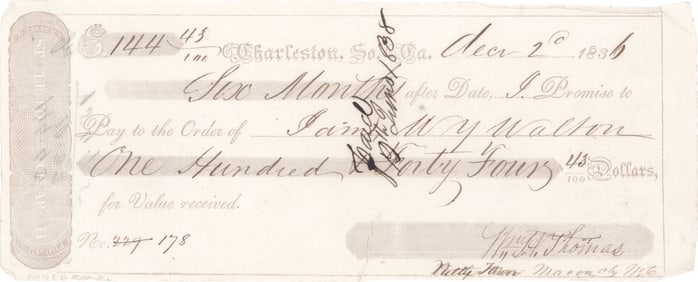 $ 144 43/100 Charleston, So. Ca. Decr 2d 1836
Six Months after Date, I Promise to
Pay to the Order of I am W Y Walton
One Hundred & Forty Four 43/100 Dollars,
for Value received.
No. 229 178
Thomas
Town Macon Cty N.C
Paid
June 1838